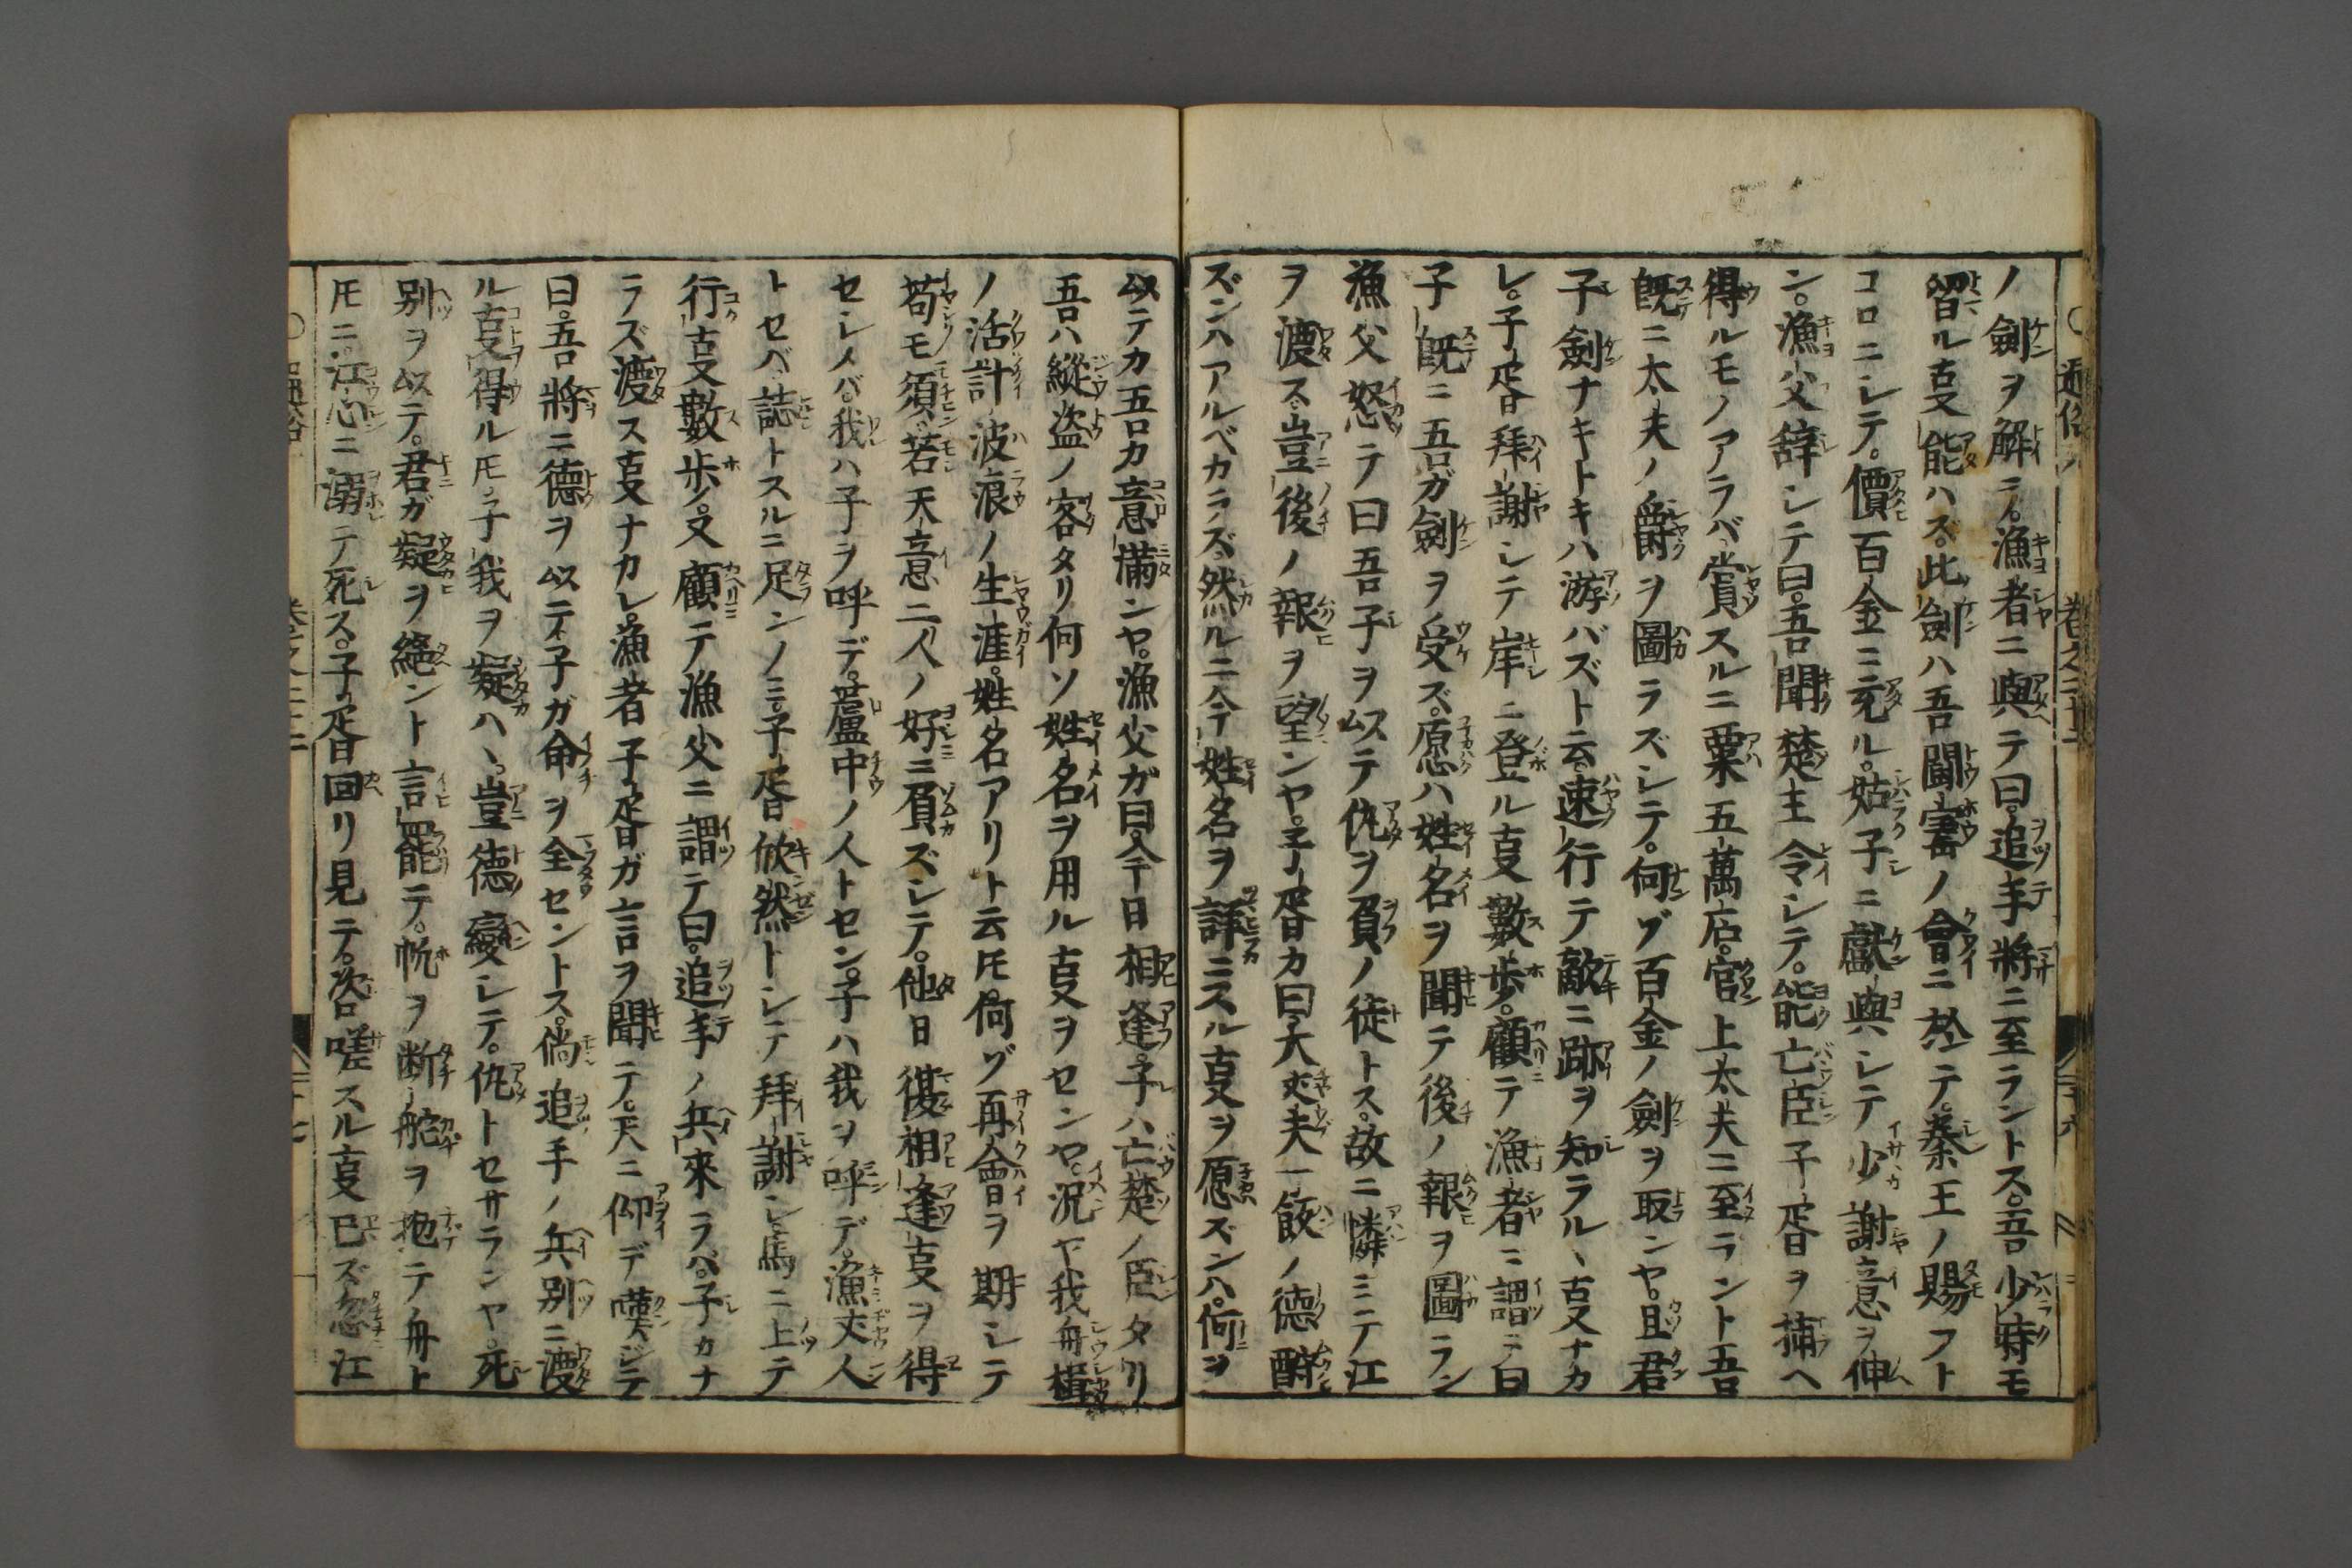 ノ劍ヲ解テ。漁者ニ與テ曰。追手將ニ至ラントス。吾少時モ
留ル吏能ハズ。此劍ハ吾鬪寳ノ會ニ於テ。秦王ノ賜フト
コロニレテ。價百金ニ充ル。姑子ニ獻與シテ少謝意ヲ伸
ン。漁父辞レテ曰。吾聞楚王令レテ。能亡臣子胥ヲ捕ヘ
得ルモノアラバ賞スルニ粟五萬石。官上太夫ニ至ラント吾
既ニ太夫ノ爵ヲ圖ラズレテ。何ゾ百金ノ劍ヲ取ンヤ。且君
子劍ナキトキハ游バズト云。速行テ敵ニ跡ヲ知ラルヽ吏ナカ
レ。子胥拜謝レテ岸ニ登ル吏數歩。顧テ漁者ニ謂テ曰
子既ニ吾ガ劍ヲ受ズ。愿ハ姓名ヲ聞テ後ノ報ヲ圖ラン
漁父怒テ曰吾子ヲ以テ仇ヲ負ノ徒トス。故ニ憐ミテ江
ヲ渡ス。豈後ノ報ヲ望ンヤ。子胥カ曰大丈夫一飯ノ德酬
ズンハアルベカラズ。然ルニ今姓名ヲ詳ニスル吏ヲ愿ズンハ。何ヲ
以テカ吾カ意滿ンヤ。漁父ガ曰。今日相逢。子ハ亡楚ノ臣タリ
吾ハ縱盗ノ客タリ何ソ姓名ヲ用ル吏ヲセンヤ。況ヤ我舟楫
ノ活計波浪ノ生涯。姓名アリト云𪜈何ゾ再會ヲ期シテ
苟モ須。若天意二人ノ好ニ負ズレテ。他日復相逢吏ヲ得
セレメバ。我ハ子ヲ呼デ。蘆中ノ人トセン。子ハ我ヲ呼デ。漁丈人
トセバ。誌トスルニ足ンノミ。子胥欣然トレテ拜謝レ馬ニ上テ
行吏數歩。又顧テ漁父ニ謂テ曰。追手ノ兵來ラバ。子カナ
ラズ渡ス吏ナカレ。漁者子胥ガ言ヲ聞テ。天ニ仰デ嘆ジテ
曰。吾將ニ德ヲ以テ子ガ命ヲ全セントス。倘追手ノ兵別ニ渡
ル吏得ル𪜈子我ヲ疑ハヽ。豈德變レテ。仇トセサランヤ。死
別ヲ以テ。君ガ疑ヲ絶ント言罷テ。帆ヲ断舵ヲ抛テ舟ト
𪜈ニ。江心ニ溺テ死ス。子胥回リ見テ。咨嗟スル吏已ズ忽江